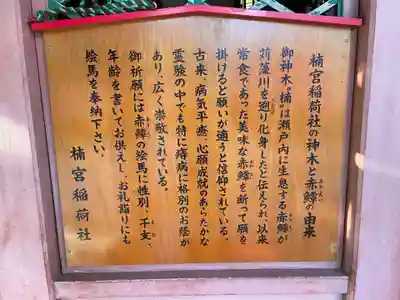 楠宮稲荷社の神木と赤鱏の由来
御神木"楠"は瀬戸内に生息する赤鱏が
苅藻川を遡り化身したと伝えられ以来
常食であった美味な赤鱏を断って願を
掛けると願いが適うと信仰されている。
古来、病気平癒、心願成就のあらたかな
霊験の中でも特に痔病に格別のお陰が
あり、広く崇敬されている。
御祈願には赤鱏の絵馬に性別、干支、
年齢を書いてお供えし、お礼詣りにも
絵馬を奉納下さい。
楠宮稲荷社